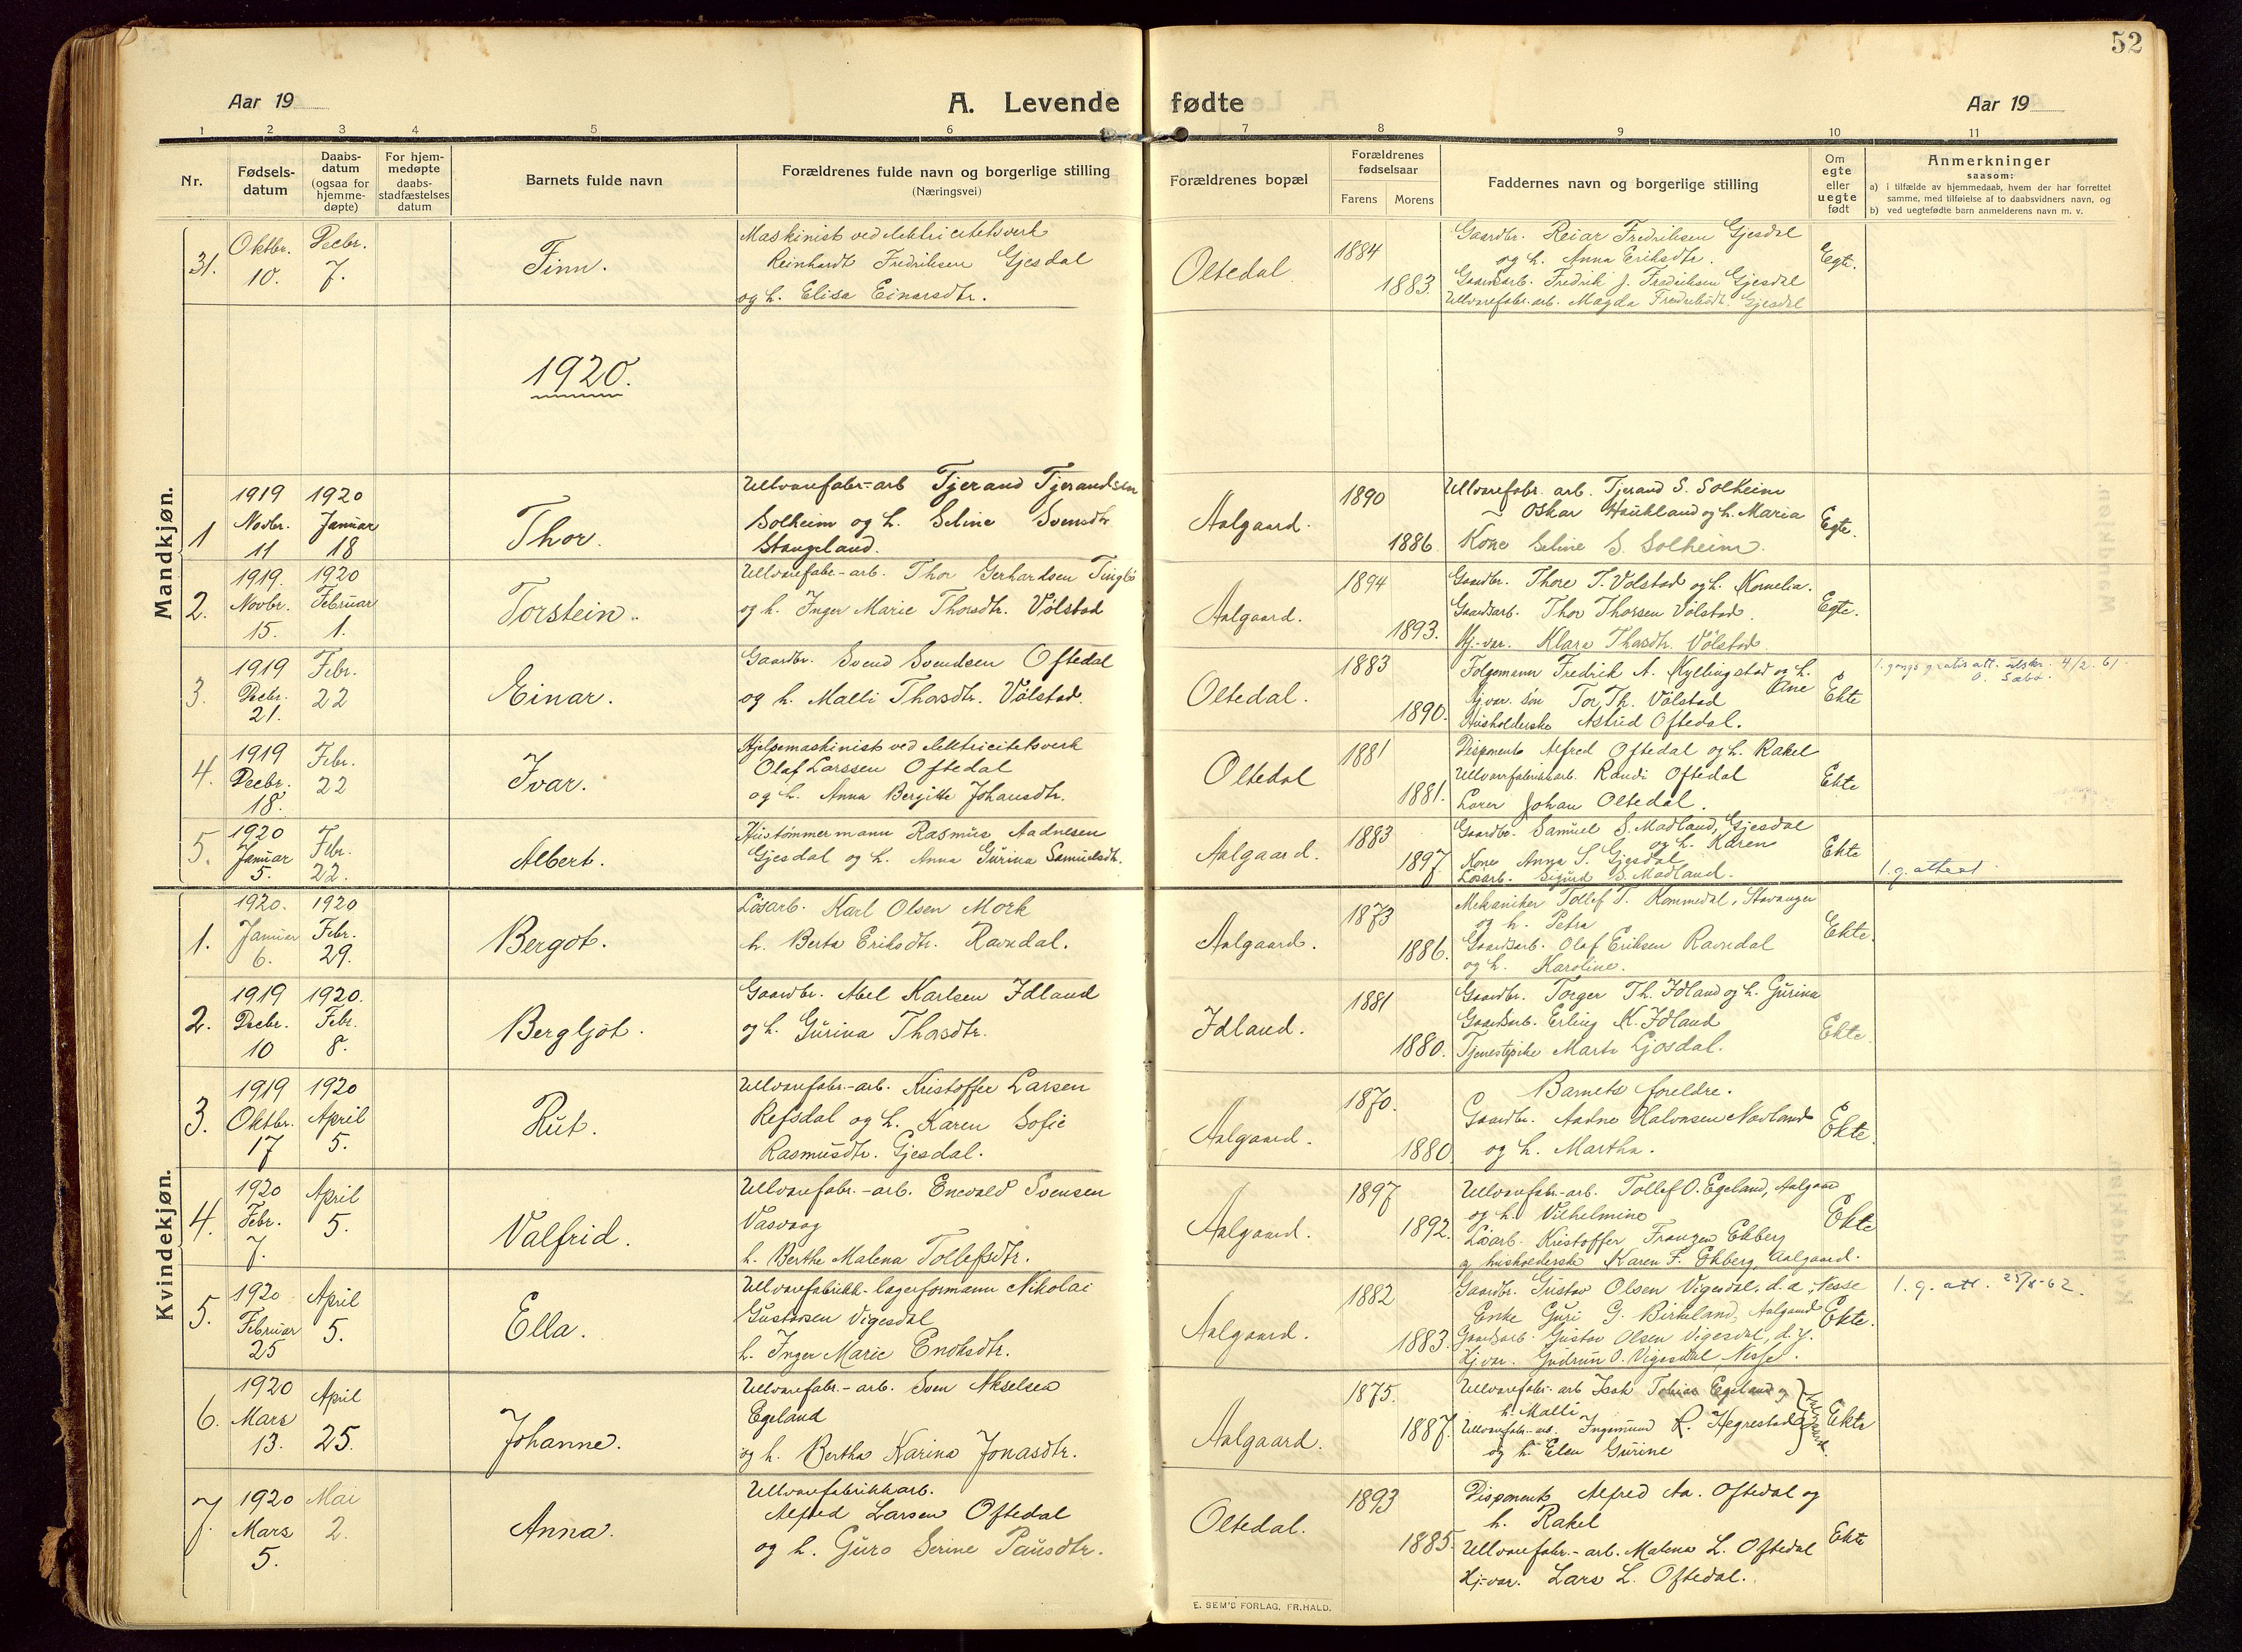 52
Aar 19
A. Levende fødte
Aar 19
1 2 3 4 5 6 7 8 9 10 11
Nr.
Fødsels-
datum
Daabs-
datum
(ogsaa for
hjemme-
døpte)
For hjem-
medøpte
daabs-
stadfæstelses
datum
Barnets fulde navn
Forældrenes fulde navn og borgerlige stilling
(Næringsvei)
Forældrenes bopæl
Forældrenes
fødselsaar
Farens Morens
Faddernes navn og borgerlige stilling
Om
egte
eller
uegte
født
Anmerkninger
saasom:
a) i tilfælde av hjemmedaab, hvem der har forrettet
samme, med tilføielse af to daabsvidners navn, og
b) ved uegtefødte barn anmelderens navn m. v.
Mandkjøn.
31.
Oktbr.
10.
Decbr.
7.
Finn.
Maskinist ved elektricitetsverk
Reinhardt Fredriksen Gjesdal
og h. Elisa Einarsdtr.
Oltedal
1884
1883.
Gaardbr. Reiar Fredriksen Gjesdal
og h. Anna Eriksdtr.
Gaardsarb. Fredrik J. Fredriksen Gjesdal
Ullvarefabr. arb. Magda Fredriksdt. Gjesdal
Egte.
1920.
1
1919
Novbr.
11
1920
Januar
18
Thor.
Ullvarefabr.-arb Tjerand Tjerandsen
Solheim og h. Seline Svensdtr
Stangeland.
Aalgaard.
1890
1886
Ullvarefabr. arb. Tjerand S. Solheim
~ Oskar Haukland og h. Maria
Kone Seline S. Solheim.
Egte.
2.
1919.
Novbr.
15.
1920
Februar
1.
Torstein.
Ullvarefabr.-arb. Thor Gerhardsen Tingbø
og h. Inger Marie Thorsdtr. Vølstad
Aalgaard.
1894
1893.
Gaardbr. Thore T. Volstad og h. Kornelia.
Gaardsarb. Thor Thorsen Volstad.
Hj.-var. Klara Thorsdtr. Vølstad.
Egte.
3.
1919
Decbr.
21.
Febr.
22
Einar.
Gaardbr. Svend Svendsen Oftedal
og h. Malli Thorsdtr. Vølstad.
Oltedal.
1883
1890.
Folgemann Fredrik A. Kyllingstad og h.
Ane
Hj.var. søn Tor Th. Volstad
Husholderske Astrid Oftedal.
Ekte
1. gangs gratis att. utskr. 4/2. 61.
O. Sæbø.
4.
1919
Decbr.
18.
Febr.
22
Ivar.
Hjelpemaskinist ved elektricitetsverk
Olaf Larssen Oftedal
og h. Anna Bergitte Johansdtr.
Oltedal
1881
1881.
Disponent Alfred Oftedal og h. Rakel
Ullvarefabrikkarb. Randi Oftedal
Lærer Johan Oltedal.
Ekte
5.
1920
Januar
5.
Febr.
22.
Albert.
Hustømmermann Rasmus Aadnesen
Gjesdal og h. Anna Gurina Samuelsdtr.
Aalgaard.
1883
1897
Gaardbr. Samuel S. Madland, Gjesdal
og h. Karen
Kone Anna S. Gjesdal
Løsarb. Sigurd S. Madland.
Ekte
1. g. attest
Kvindekjøn.
1.
1920.
Januar
6.
1920
Febr.
29.
Bergot.
Løsarb. Karl Olsen Mork
h. Berta Eriksdtr. Ravndal.
Aalgaard.
1873
1886.
Mekaniker Tollef T. Kommedal, Stavanger
og h. Petra
Gaardsarb. Olaf Eriksen Ravndal
og h. Karoline.
Ekte.
2.
1919
Decbr.
10
1920.
Febr.
8.
Bergljot.
Gaardbr. Abel Karlsen Idland
og h. Gurina Thorsdtr.
Idland.
1881
1880.
Gaardbr. Torger Th. Idland og h. Gurina
Gaardsarb. Erling K. Idland
Tjenestepike Marta Ljosdal.
Ekte.
3.
1919
Oktbr.
17
1920
April
5.
Rut.
Ullvarefabr.-arb. Kristoffer Larsen
Refsdal og h. Karen Sofie
Rasmusdtr. Gjesdal.
Aalgaard.
1870.
1880.
Barnets foreldre.
Gaardbr. Aadne Halvorsen Nødland
og h. Martha.
Ekte.
4.
1920
Febr.
7.
April
5.
Valfrid.
Ullvarefabr.-arb. Enevald Svensen
Vasvaag
h. Berthe Malena Tollefsdtr.
Aalgaard.
1897
1892.
Ullvarefabr.-arb. Tollef O. Egeland, Aalgaard
og h. Vilhelmine
Løsarb. Kristoffer Franzen Ekberg
og husholderske Karen F. Ekberg, Aalgaard.
Ekte
5.
1920
Februar
25
April
5.
Ella.
Ullvarefabrikk-lagerformann Nikolai
Gustavsen Vigesdal
h. Inger Marie Enoksdtr.
Aalgaard.
1882
1883.
Gaardbr. Gustav Olsen Vigesdal, d.a., Nesse
Enke Guri G. Birkeland, Aalgaard
Gaardsarb. Gustav Olsen Vigesdal, d.y.
Hj.var. Gudrun O. Vigesdal, Nesse.
Ekte.
1. g. att. 25/8-62.
6.
1920
Mars
13.
April
25.
Johanne.
Ullvarefabr.-arb. Sven Akselsen
Egeland
og h. Bertha Karina Jonasdtr.
Aalgaard.
1875.
1887.
Ullvarefabr.-arb Isak Tobias Egeland og
h. Malli
Ullvarefabr.-arb. Ingemund R. Hegrestad
og h. Elen Gurine
Aalgaard.
Ekte
7.
1920
Mars
5.
Mai
2.
Anna.
Ullvarefabrikkarb.
Alfred Larsen Oftedal
og h. Guro Serine Paulsdtr.
Oltedal.
1893
1885.
Disponent Alfred Aa. Oftedal og
h. Rakel
Ullvarefabr.-arb. Malena L. Oftedal
Hj-var. Lars L. Oftedal.
Ekte
E. SEM'S FORLAG, FR.HALD.